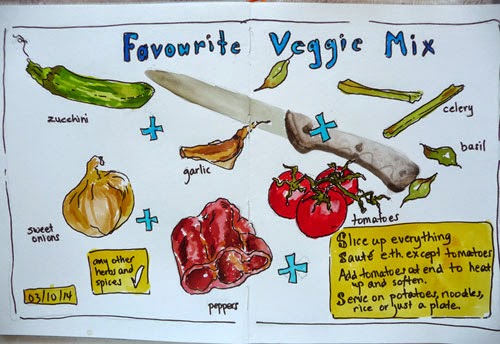 Favourite Veggie Mix
zucchini
+
garlic
+
celery
basil
sweet
onions
+
peppers
+
tomatoes
any other
herbs and
spices ✓
03/10/14
Slice up everything
Sauté eth. except tomatoes
Add tomatoes at end to heat
up and soften.
Serve on potatoes, noodles,
rice or just a plate.